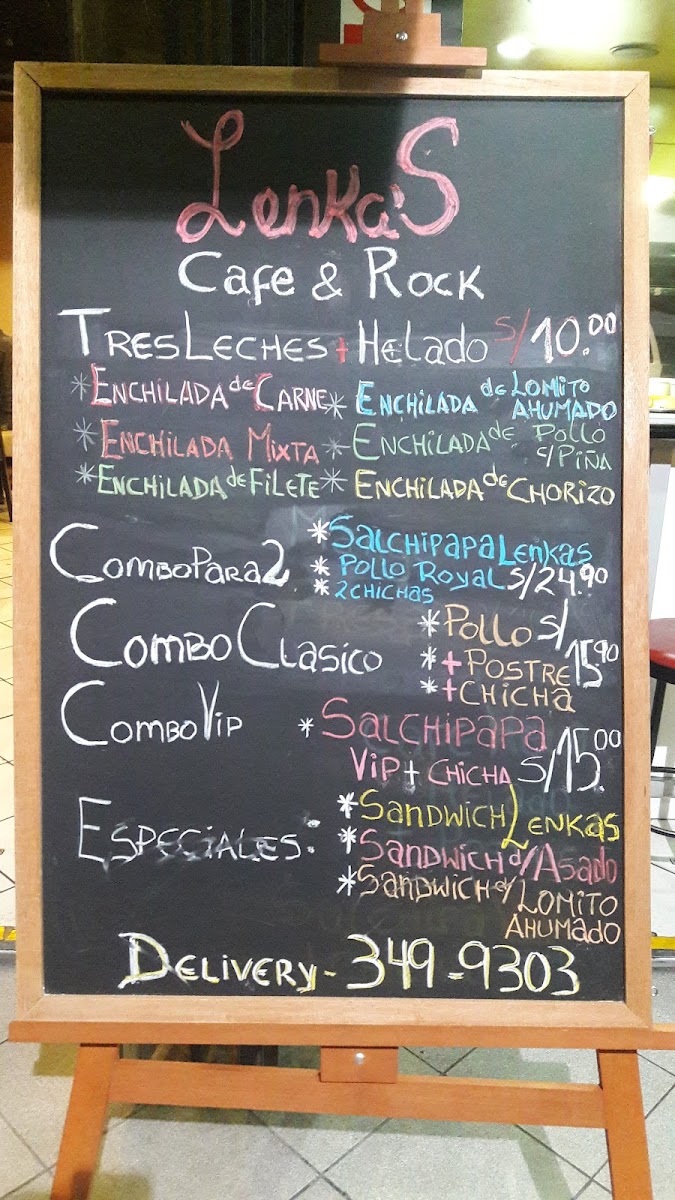 Lenka'S
Cafe & Rock
TRES LECHES + HELADO S/10.00
*ENCHILADA de CARNE * ENCHILADA de LOMITO AHUMADO
* ENCHILADA MIXTA * ENCHILADA de POLLO c/PIÑA
*ENCHILADA de FILETE * ENCHILADA de CHORIZO
COMBO PARA 2 * SALCHIPAPA LENKAS
* POLLO ROYAL S/24.90
* 2 CHICHAS
COMBO CLASICO * POLLO S/15.90
* + POSTRE
* + CHICHA
COMBO VIP * SALCHIPAPA
VIP + CHICHA S/15.00
ESPECIALES: * SANDWICH LENKAS
* SANDWICH d/ASADO
* SANDWICH d/ LOMITO
AHUMADO
DELIVERY - 349-9303